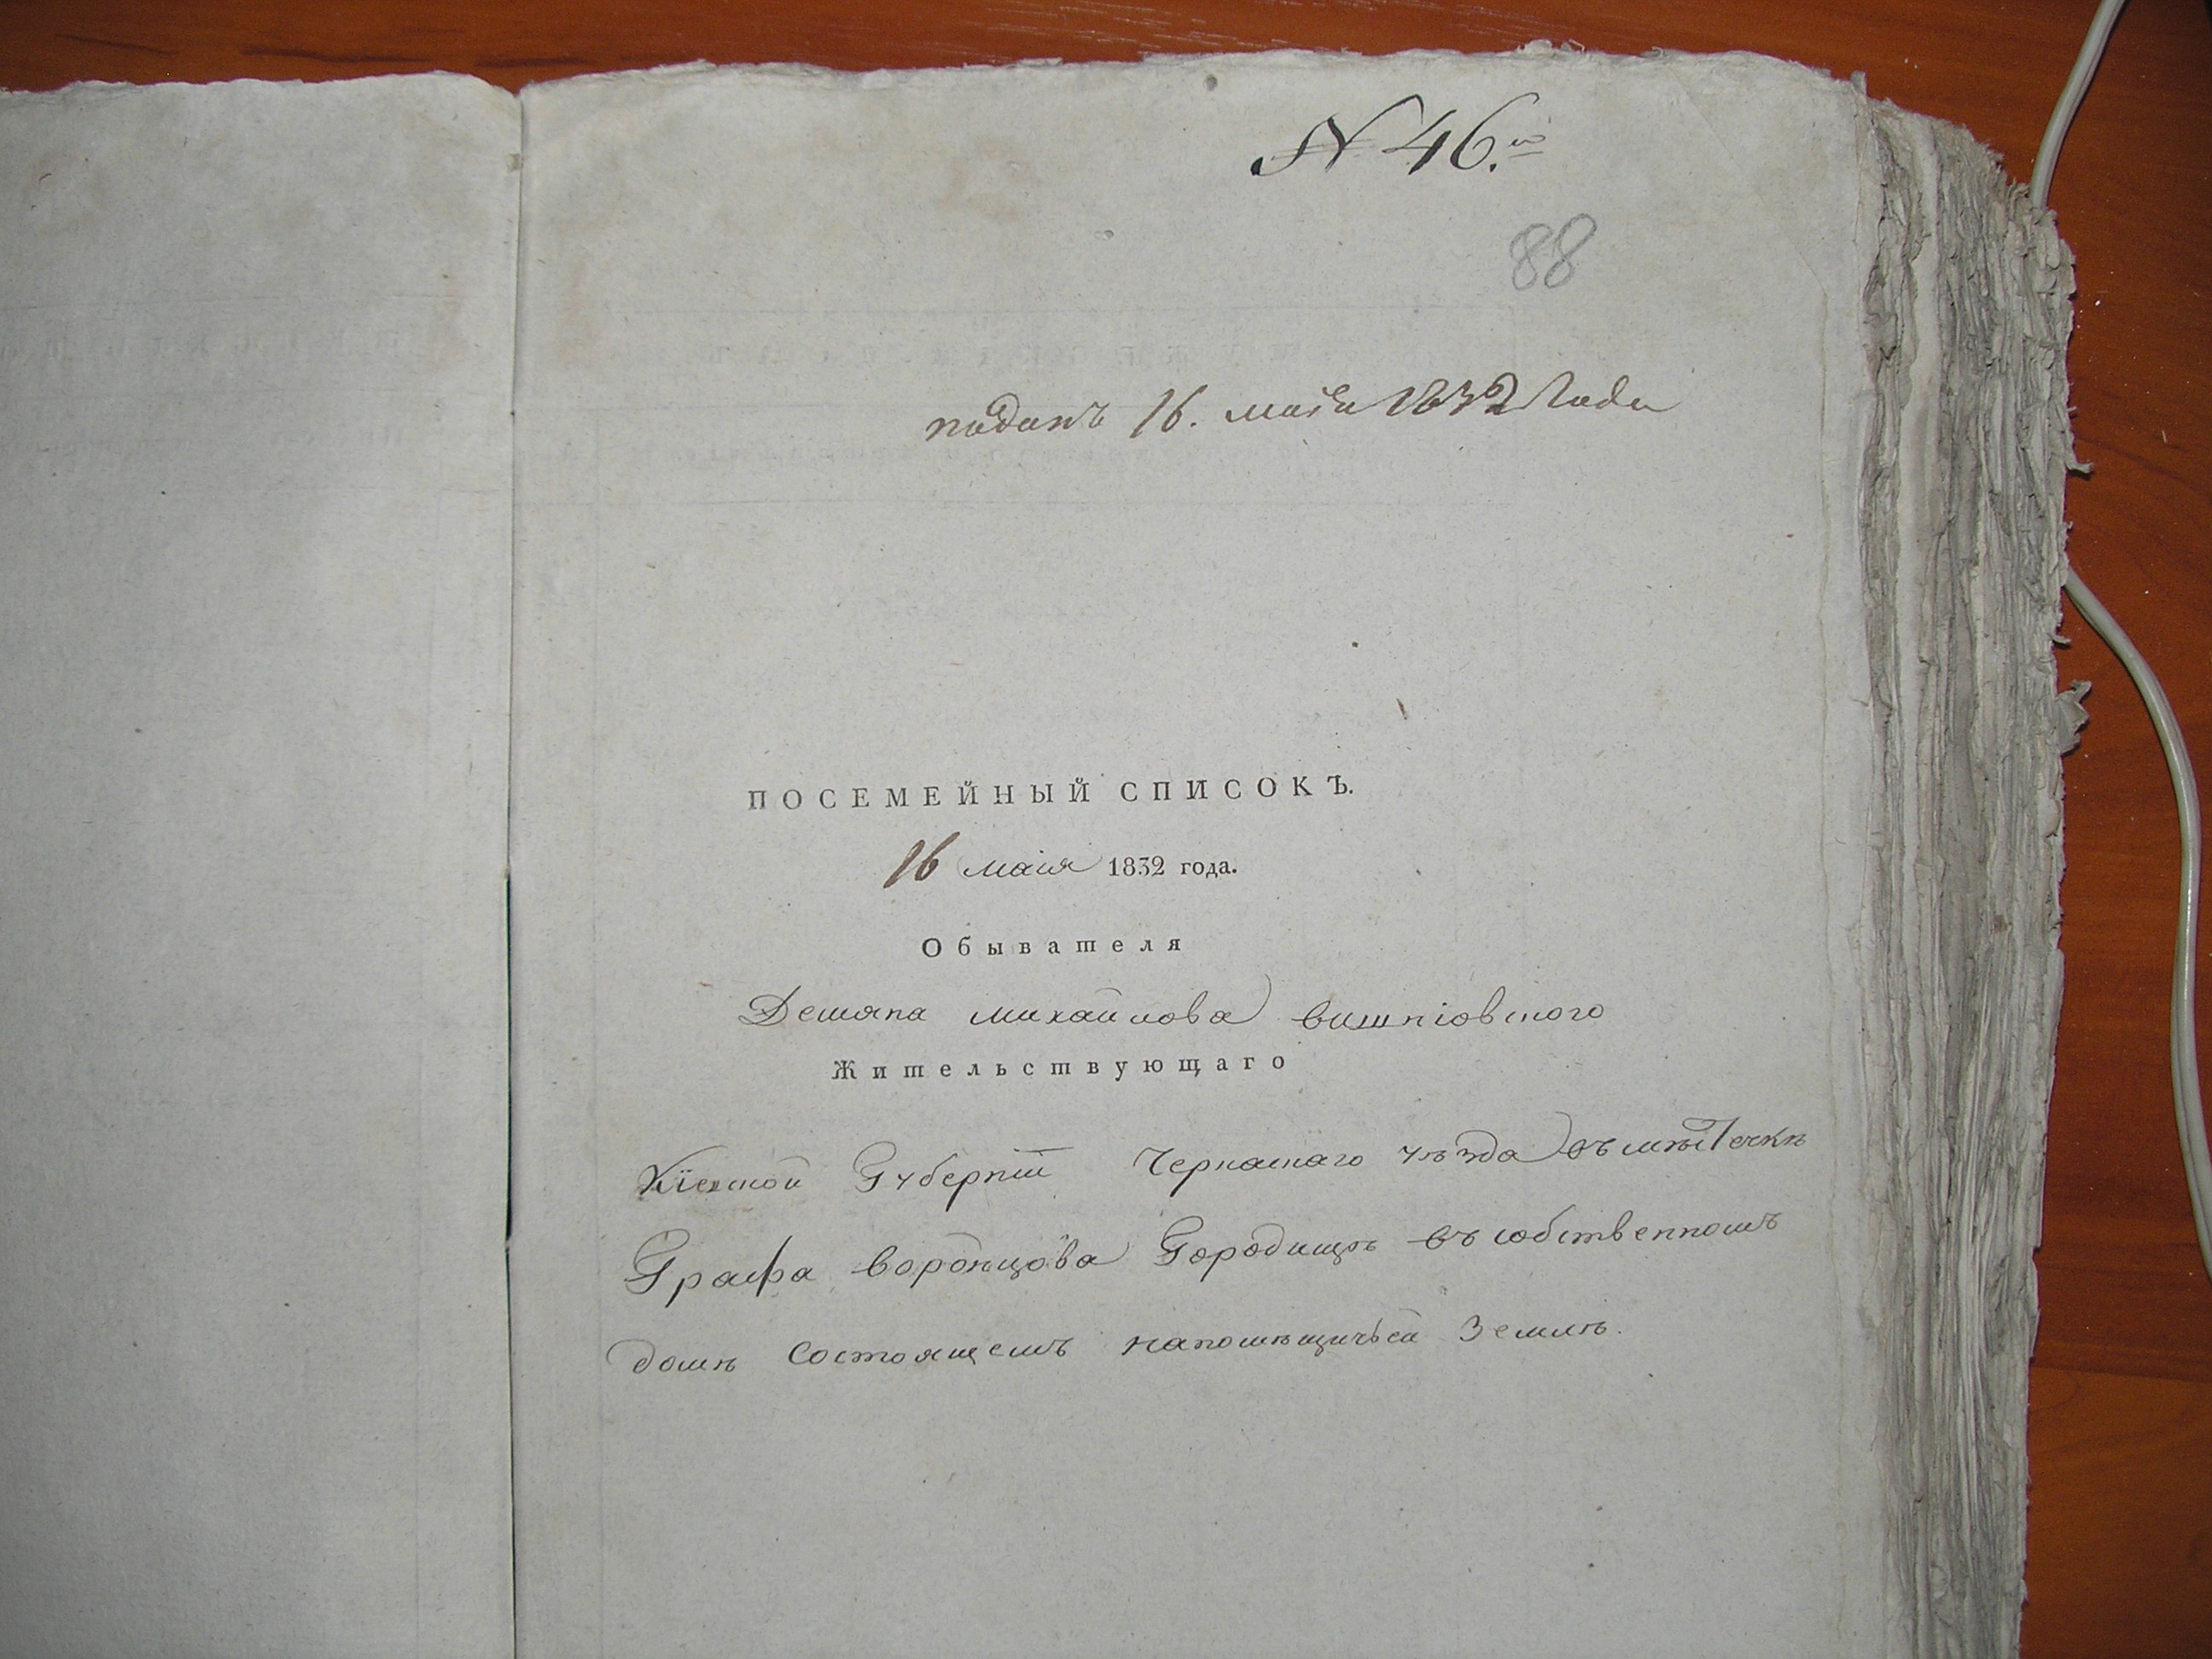 N 46.й
88
поданъ 16. маія 1832 Года
ПОСЕМЕЙНЫЙ СПИСОКЪ.
16 маія 1832 года.
Обывателя
Демяна михайлова вишніовского
Жительствующаго
Кіевской Губерніи Черкаскаго уѣзда въ мѣстечкѣ
Графа воронцова Городищѣ въ собственномъ
домѣ состоящемъ напомѣщичьей Землѣ.